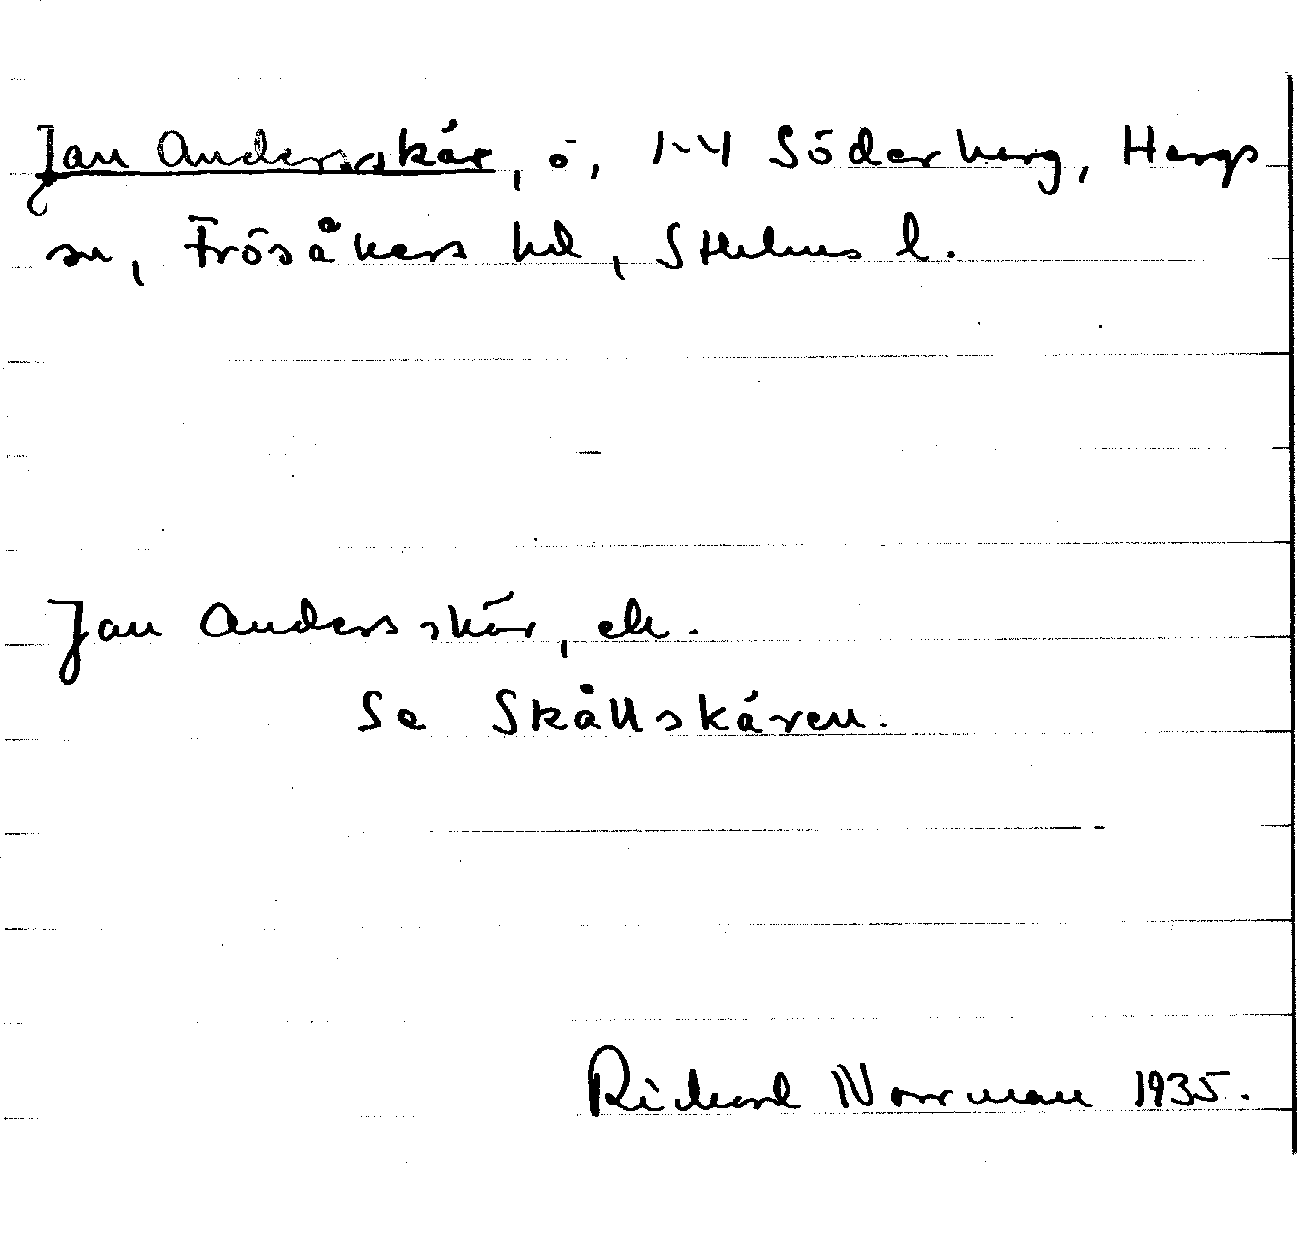 Jan Andersskär, ö, 1-4 Söderberg, Hargs
sn, Frösåkers hd, Sthlms l.
Jan Andersskär, ek.
Se Skållskären.
Richard Norrman 1935.